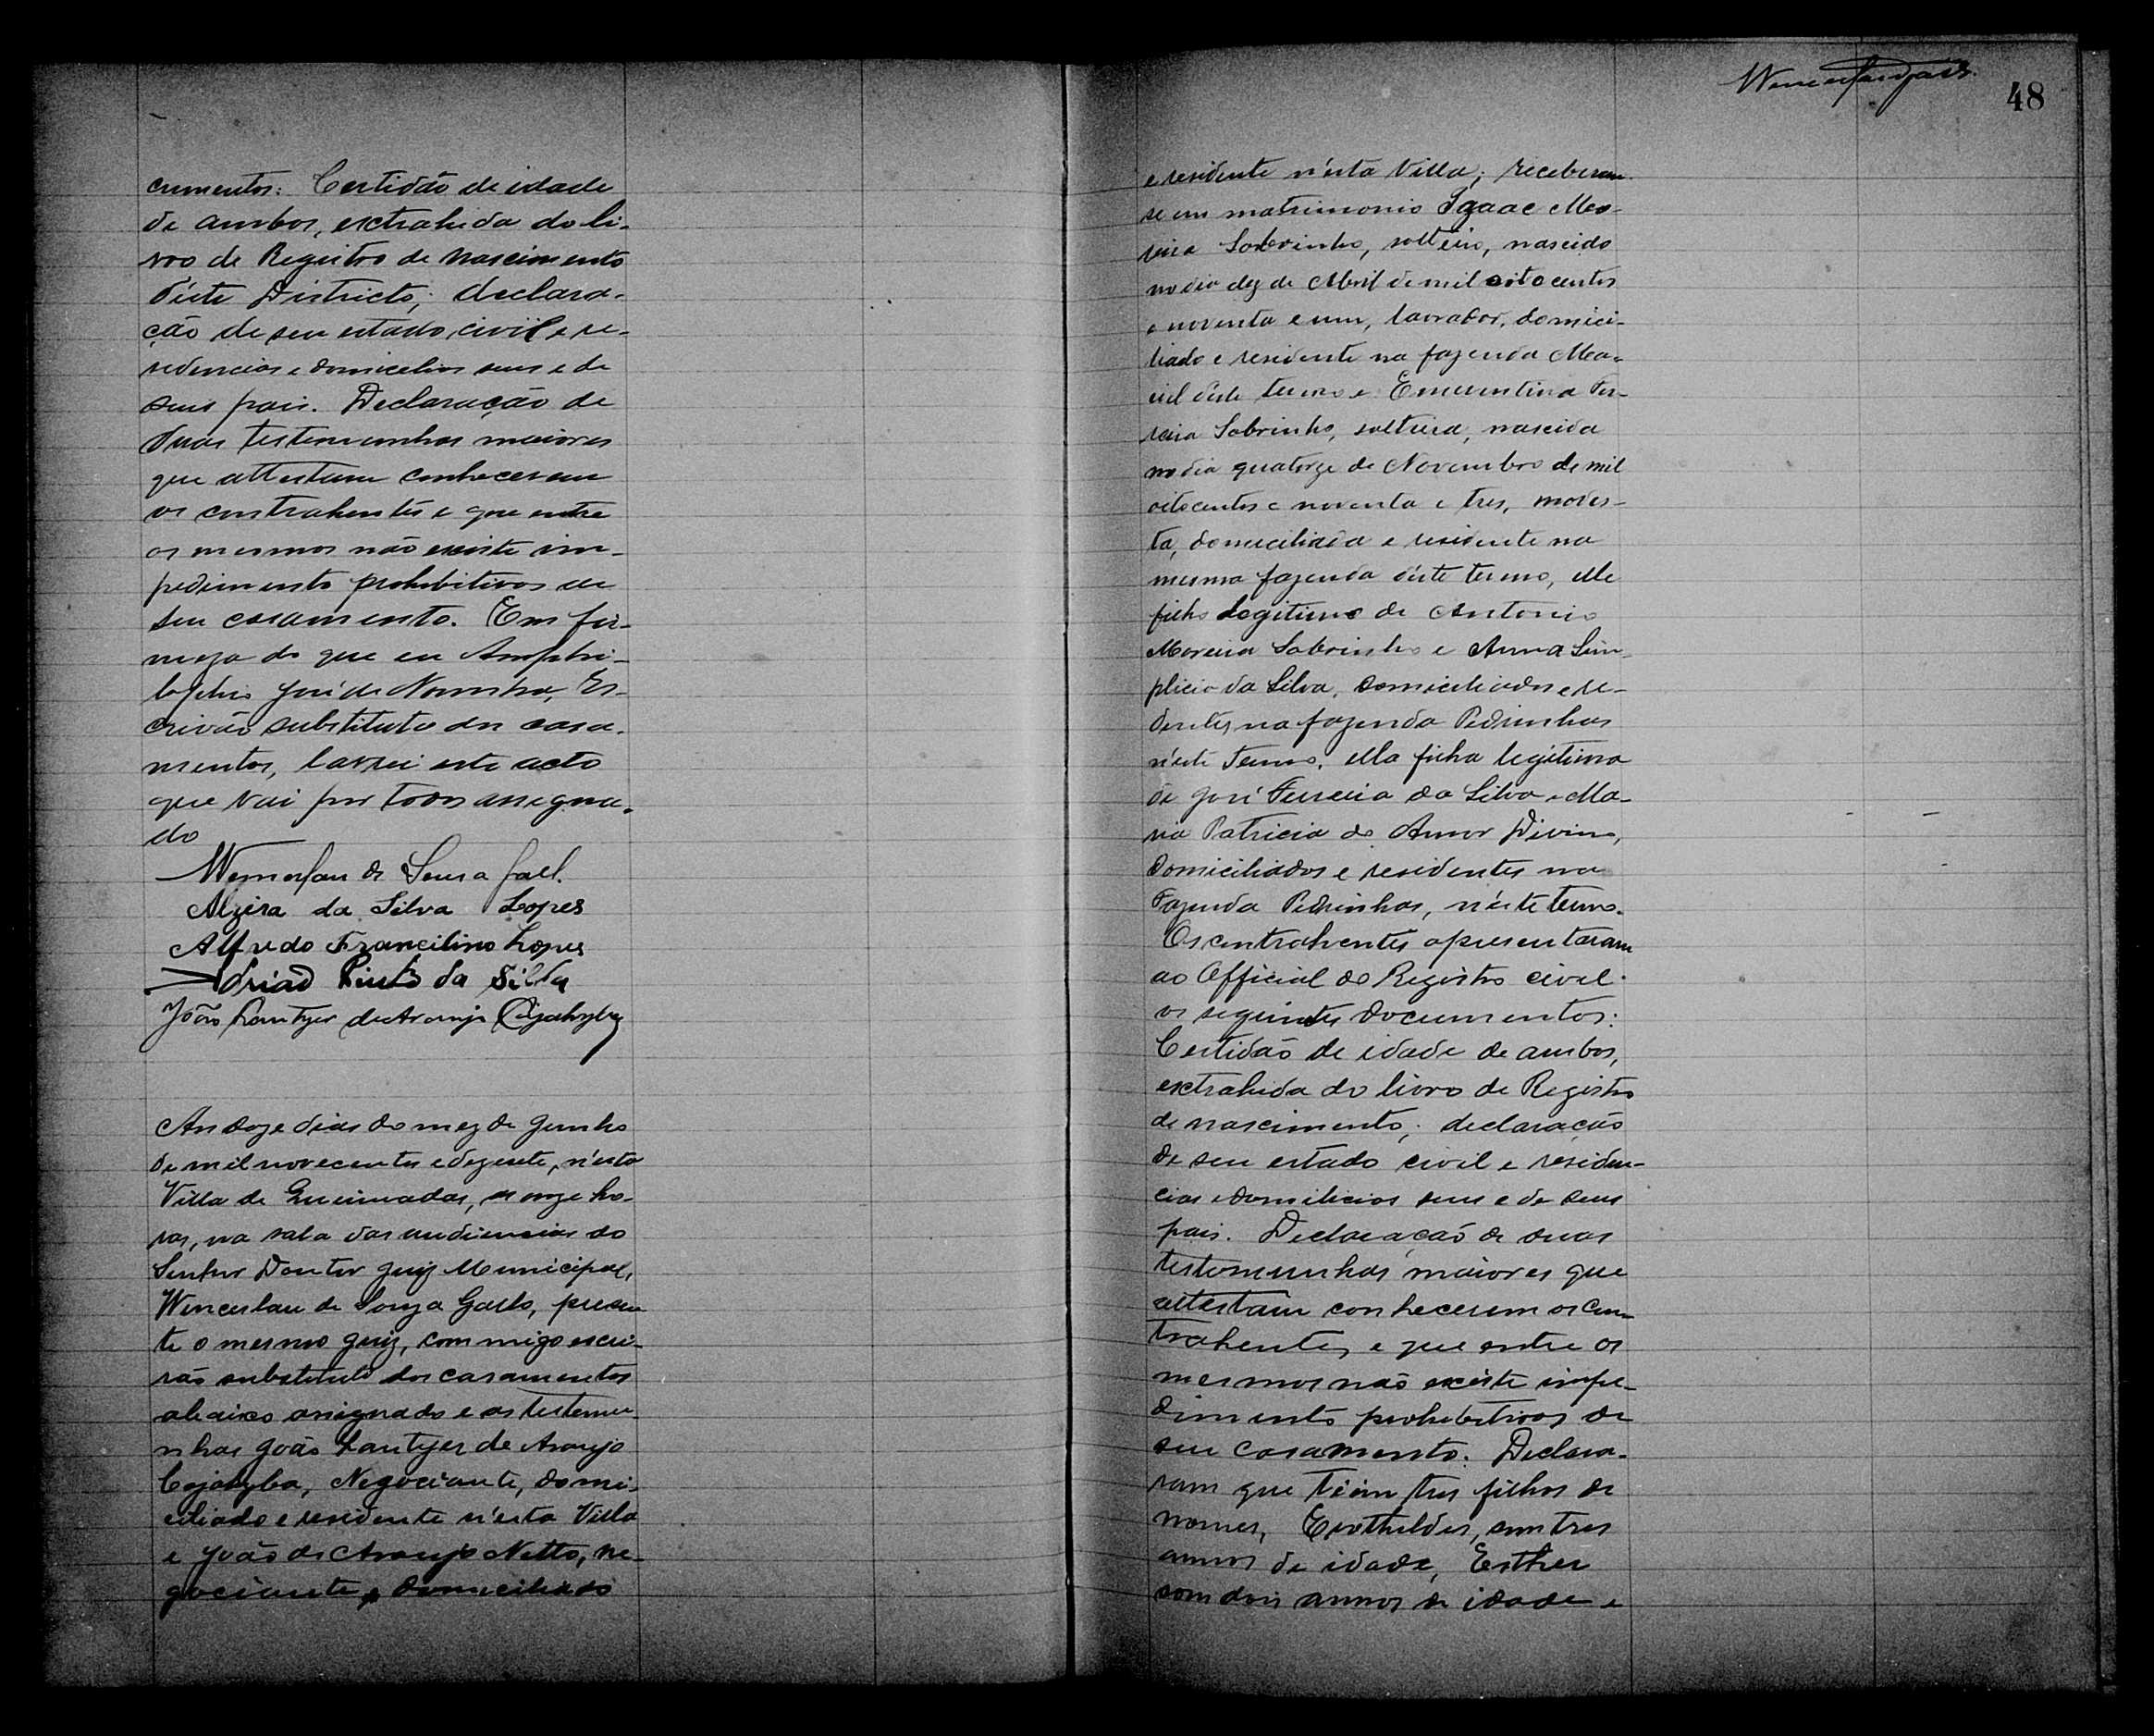 cumentos: Certidão de idade
de ambos, extrahida do li-
vro de Registro de nascimento
d'este Districto; declara-
ção de seu estado civil e re-
sidencias e domicilios seus e de
seus pais. Declaração de
duas testemunhas maiores
que attestam conhecerem
os contrahentes e que entre
os mesmos não existe im-
pedimento prohibitivos de
seu casamento. Em fir-
meza do que eu Amphi-
José de Noronha, Es-
crivão substituto dos casa-
mentos, lavrei este acto
que vai por todos assegna-
do
Wenceslau de Souza
Alzira da Silva Lopes
Alfredo Francilino Lopes
Adrião Pinto da Silva
João Lantyer de Araujo Cajahyba
Aos doze dias do mez de Junho
de mil novecentos e dezesete, n'esta
Villa de Queimadas, as onze ho-
ras, na sala das audiencias do
Senhor Doutor Juiz Municipal,
Wenceslau de Souza Gallo, presen-
te o mesmo Juiz, commigo escri-
vão substituto dos casamentos
abaixo assignado e as testemu-
nhas João Lantyer de Araujo
Cajahyba, Negociante, domi-
ciliado e residente n'esta Villa
e João de Araujo Netto, ne-
gociante e domiciliado
48
e residente n'esta Villa; receberam-
se em matrimonio Izaac Mo-
reira Sobrinho, solteiro, nascido
no dia dez de Abril de mil oitocentos
e noventa e um, lavrador, domici-
liado e residente na fazenda
d'este termo e Emerentina Fer-
reira Sobrinho, solteira, nascida
no dia quatorze de Novembro de mil
oitocentos e noventa e tres, modis-
ta, domiciliada e residente na
mesma fazenda d'este termo, elle
filho legitimo de Antonio
Moreira Sobrinho e Anna Sim-
plicia da Silva, domiciliados e re-
dentes na fazenda Pedrinhas
n'este Termo, ella filha legitima
de José Ferreira da Silva e Ma-
ria Patricia do Amor Divino,
domiciliados e residentes na
Fazenda Pedrinhas, n'este termo.
Os contrahentes apresentaram
ao Official do Registro civil
os seguintes documentos:
Certidão de idade de ambos,
extrahida do livro de Registro
de nascimento; declaração
de seu estado civil e residen-
cias e domilicios seus e de seus
pais. Declaração de duas
testemunhas maiores que
attestam conhecerem os con-
trahentes e que entre os
mesmos não existe impe-
dimento prohibitivos de
seu casamento. Declara-
ram que têem tres filhos de
nomes, com tres
annos de idade, Esther
com dois annos de idade e